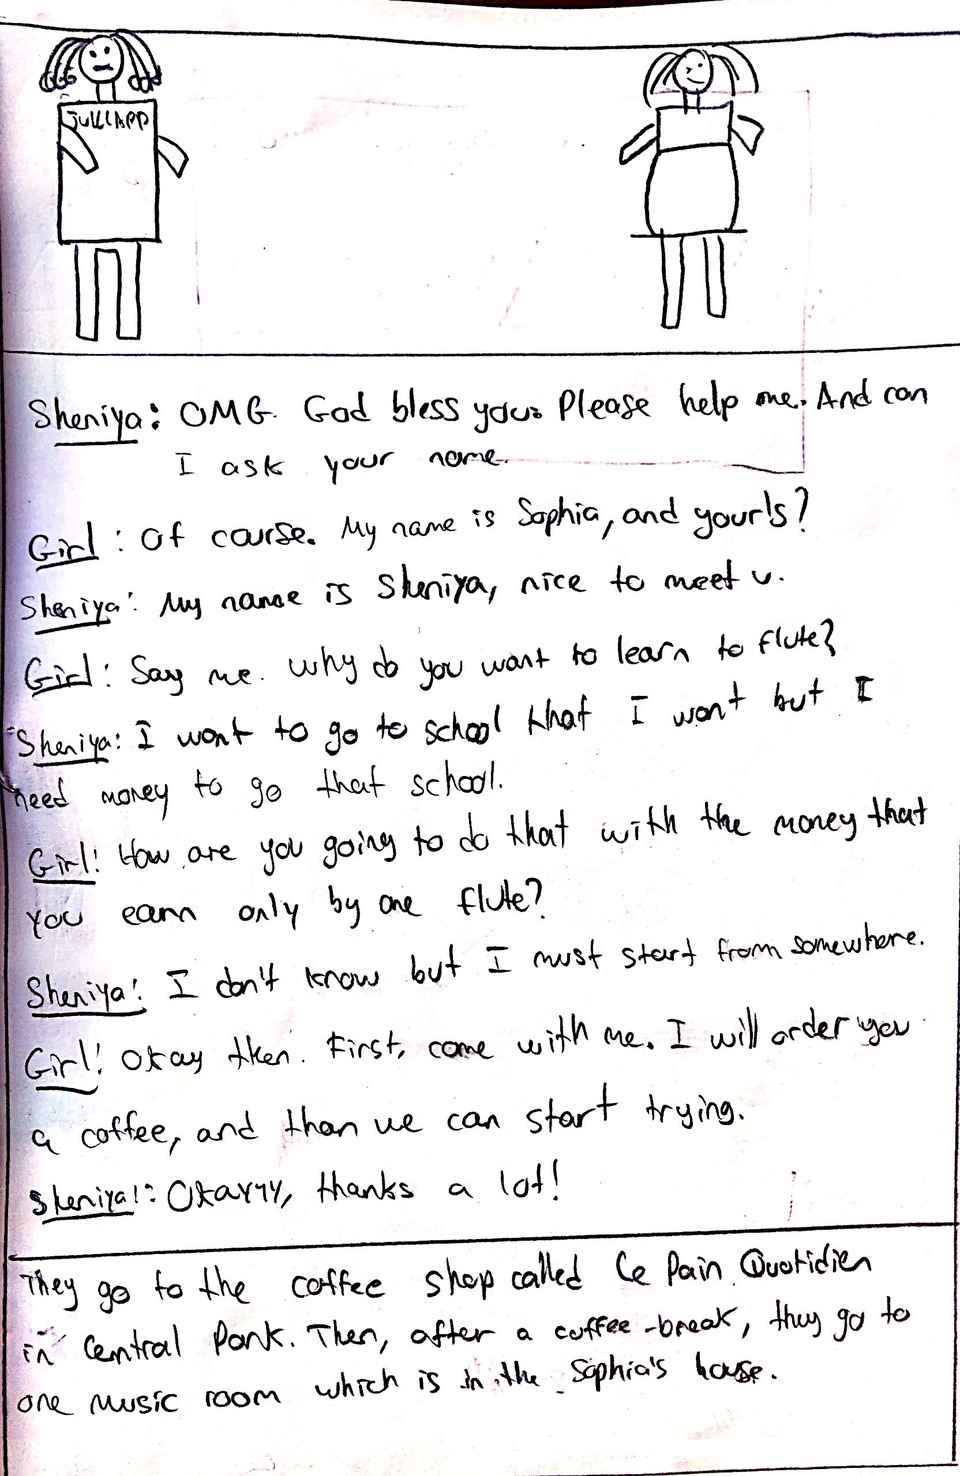 JUKLAPP
Sheniya: OMG. God bless you. Please help me. And can
I ask your name.
Girl: Of course. My name is Sophia, and your's?
Sheniya: My name is Sheniya, nice to meet u.
Girl: Say me. Why do you want to learn to flute?
Sheniya: I want to go to school that I want but I
need money to go that school.
Girl: How are you going to do that with the money that
you earn only by one flute?
Sheniya: I don't know but I must start from somewhere.
Girl: Okay then. First, come with me. I will order you
a coffee, and than we can start trying.
Sheniya: Okayyy, thanks a lot!
They go to the coffee shop called Le Pain Quotidien
in Central Park. Then, after a coffee-break, they go to
one music room which is in the Sophia's house.